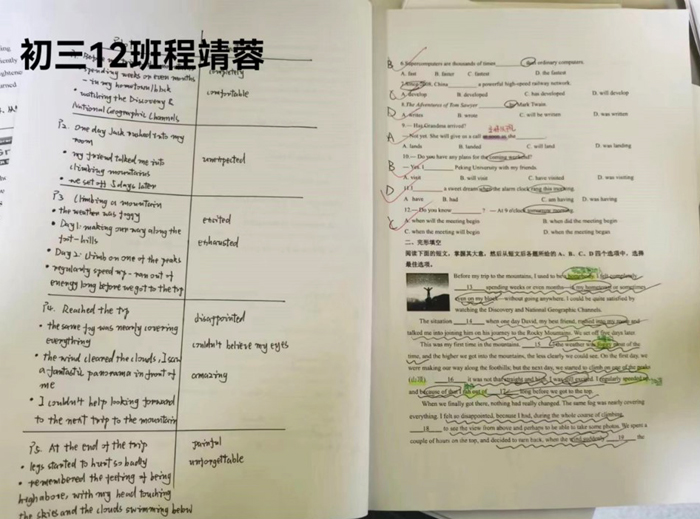 初三12班程靖蓉
completely
spending weeks or even months
- in my hometown/block
comfortable
• watching the Discovery &
National Geographic Channels
P2. One day Jack rushed into my
room
• my friend talked me into
climbing mountains
unexpected
• we set off 5 days later
P3 Climbing a mountain
• the weather was foggy
excited
• Day 1: making our way along the
foot-hills
exhausted
• Day 2: climb on one of the peaks
• regularly speed up - ran out of
energy long before we got to the top
P4. Reached the top
disappointed
• the same fog was nearly covering
everything
couldn't believe my eyes
• the wind cleared the clouds, I saw
a fantastic panorama in front of
amazing
me
• I couldn't help looking forward
to the next trip to the mountain
P5. At the end of the trip
painful
• legs started to hurt so badly
unforgettable
• remembered the feeling of being
high above, with my head touching
the skies and the clouds swimming below
B
6. Supercomputers are thousands of times than ordinary computers.
A. fast B. faster C. fastest D. the fastest
C
China a powerful high-speed railway network.
A. develop B. developed C. has developed D. will develop
8. The Adventures of Tom Sawyer by Mark Twain.
D
A. writes B. wrote C. will be written D. was written
9. — Has Grandma arrived?
A
— Not yet. She will give us a call as soon as she
A. lands B. landed C. will land D. was landing
10. — Do you have any plans for the coming weekend?
B
— Yes. I Peking University with my friends.
A. visit B. will visit C. have visited D. was visiting
D
11. I a sweet dream when the alarm clock rang this morning.
A. have B. had C. am having D. was having
12. — Do you know ? — At 9 o'clock tomorrow morning.
C
A. when will the meeting begin B. when did the meeting begin
C. when the meeting will begin D. when the meeting began
二、完形填空
阅读下面的短文，掌握其大意，然后从短文后各题所给的 A、B、C、D 四个选项中，选择
最佳选项。
Before my trip to the mountains, I used to be a homebody. I felt completely
13 spending weeks or even months in my hometown or sometimes
even on my block without going anywhere. I could be quite satisfied by
watching the Discovery and National Geographic Channels.
The situation 14 when one day David, my best friend, rushed into my room and
talked me into joining him on his journey to the Rocky Mountains. We set off five days later.
This was my first time in the mountains. 15 the weather was foggy most of the
time, and the higher we got into the mountains, the less clearly we could see. On the first day, we
were making our way along the foothills, but the next day, we started to climb on one of the peaks
(山顶). 16 it was not that straight and high, I was still scared. I regularly speeded up
and because of that I ran out of 17 long before we got to the top.
When we finally got there, nothing had really changed. The same fog was nearly covering
everything. I felt so disappointed, because I had, during the whole course of climbing,
18 to see the view from above and perhaps to be able to take some photos. We spent a
couple of hours on the top, and decided to turn back, when the wind suddenly 19 the